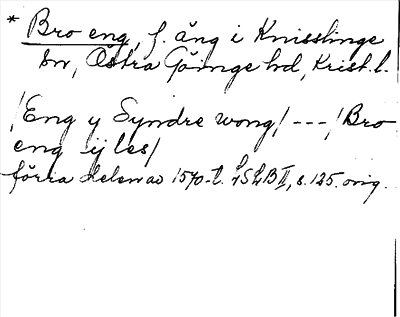 * Bro eng, f. äng i Knisslinge
sn, Östra Göinge hd, Krist. l.
/Eng y Syndre wong/ --- /Bro
eng ij les/
förra delen av 1570-t. LSLB II, s. 125. orig.